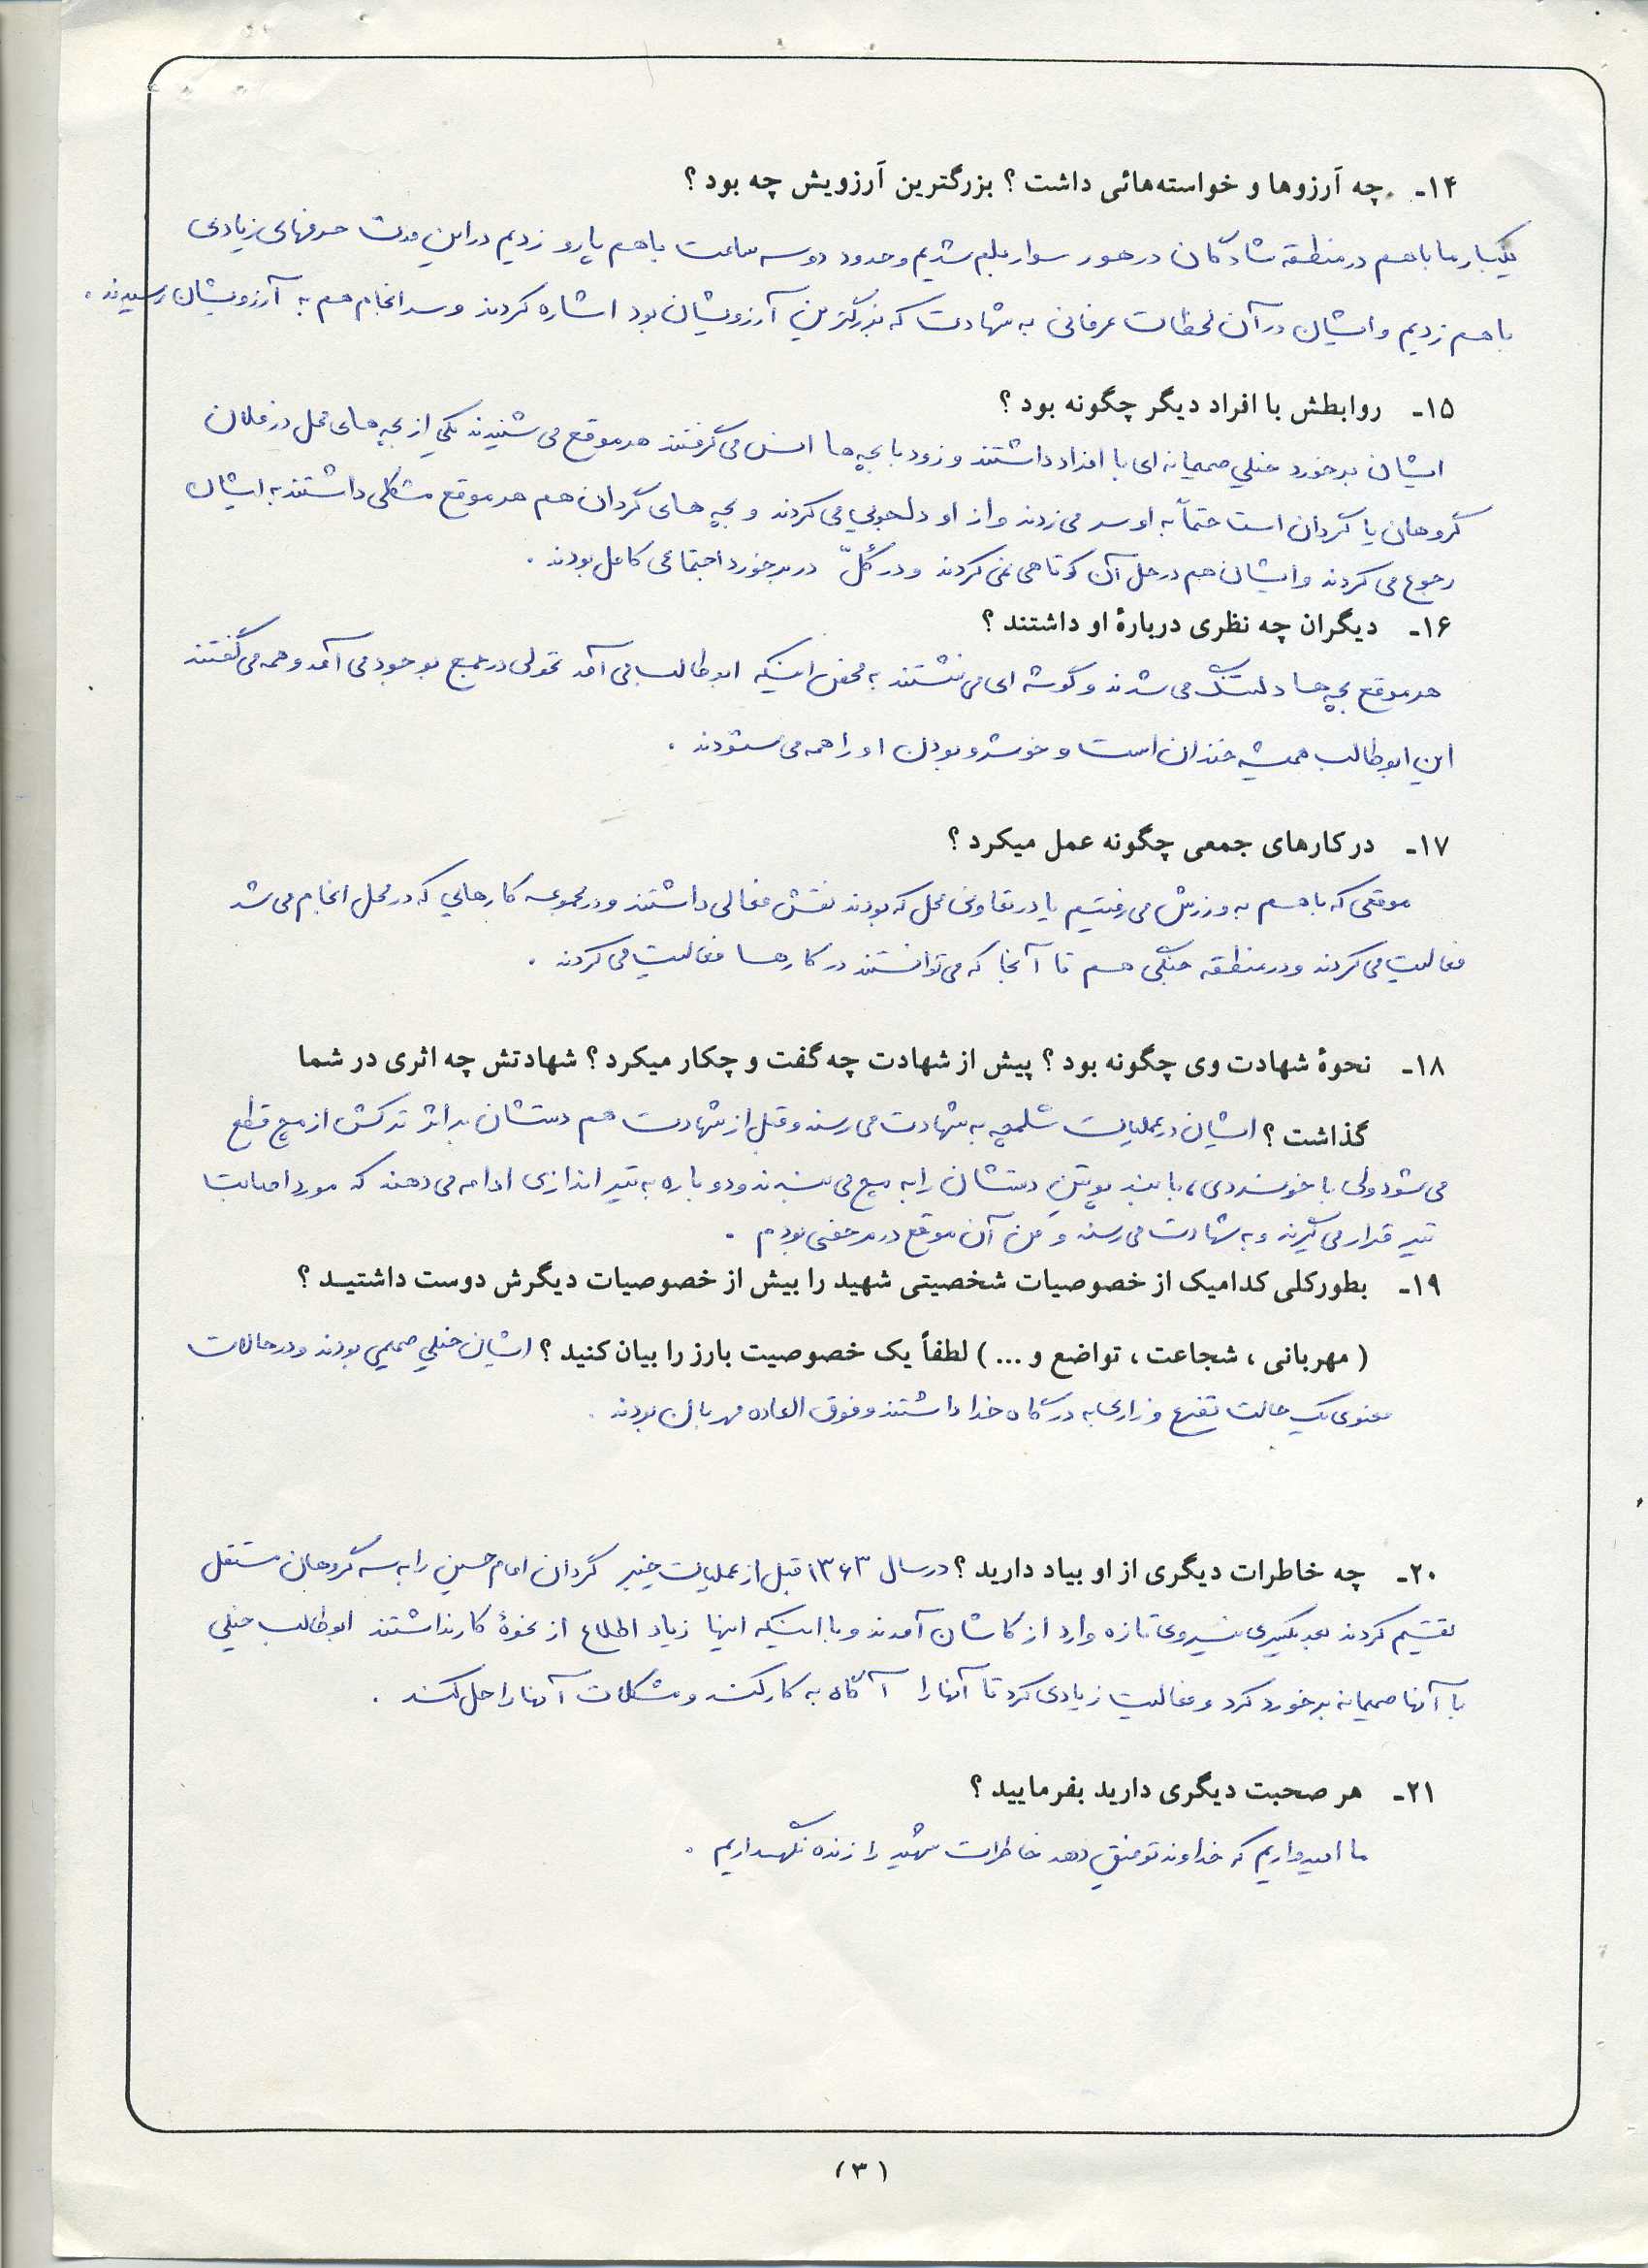 ۱۴- چه آرزوها و خواسته‌هائی داشت ؟ بزرگترین آرزویش چه بود ؟
یکبار ما باهم در منطقه شادگان در هور سوار بلم شدیم و حدود دو سه ساعت باهم پارو زدیم در این مدت حرفهای زیادی
باهم زدیم و ایشان در آن لحظات عرفانی به شهادت که بزرگترین آرزویشان بود اشاره کردند و سرانجام هم به آرزویشان رسیدند .
۱۵- روابطش با افراد دیگر چگونه بود ؟
ایشان برخورد خیلی صمیمانه ای با افراد داشتند و زود با بچه ها انس می گرفتند هر موقع می شنیدند یکی از بچه های محل در فلان
گروهان یا گردان است حتماً به او سر می زدند و از او دلجویی می کردند و بچه های گردان هم هر موقع مشکلی داشتند به ایشان
رجوع می کردند و ایشان هم در حل آن کوتاهی نمی کردند و در کلّ در برخورد اجتماعی کامل بودند .
۱۶- دیگران چه نظری دربارهٔ او داشتند ؟
هر موقع بچه ها دلتنگ می شدند و گوشه ای می نشستند به محض اینکه ابوطالب می آمد تحولی در جمع بوجود می آمد و همه می گفتند
این ابوطالب همیشه خندان است و خوشرو بودن او را همه می ستودند .
۱۷- در کارهای جمعی چگونه عمل میکرد ؟
موقعی که باهم به ورزش می رفتیم یا در تعاونی محل که بودند نقش فعالی داشتند و در مجموعه کارهایی که در محل انجام می شد
فعالیت می کردند و در منطقه جنگی هم تا آنجا که می توانستند در کارها فعالیت می کردند .
۱۸- نحوهٔ شهادت وی چگونه بود ؟ پیش از شهادت چه گفت و چکار میکرد ؟ شهادتش چه اثری در شما
گذاشت ؟ ایشان در عملیات شلمچه به شهادت می رسند و قبل از شهادت هم دستشان بر اثر ترکش از مچ قطع
می شود ولی با خونسردی، با بند پوتین دستشان را به مچ می بندند و دوباره به تیراندازی ادامه می دهند که مورد اصابت
تیر قرار می گیرند و به شهادت می رسند و من آن موقع در مرخصی بودم .
۱۹- بطورکلی کدامیک از خصوصیات شخصیتی شهید را بیش از خصوصیات دیگرش دوست داشتید ؟
( مهربانی ، شجاعت ، تواضع و ... ) لطفاً یک خصوصیت بارز را بیان کنید ؟ ایشان خیلی صمیمی بودند و در حالات
معنوی یک حالت تضرع و زاری به درگاه خدا داشتند و فوق العاده مهربان بودند .
۲۰- چه خاطرات دیگری از او بیاد دارید ؟ در سال ۱۳۶۳ قبل از عملیات خیبر گردان امام حسین را به سه گروهان مستقل
تقسیم کردند بعد یکسری نیروی تازه وارد از کاشان آمدند و با اینکه اینها زیاد اطلاع از نحوهٔ کار نداشتند ابوطالب خیلی
با آنها صمیمانه برخورد کرد و فعالیت زیادی کرد تا آنها را آگاه به کار کند و مشکلات آنها را حل کند .
۲۱- هر صحبت دیگری دارید بفرمایید ؟
ما امیدواریم که خداوند توفیق دهد خاطرات شهید را زنده نگهداریم .
(۳)